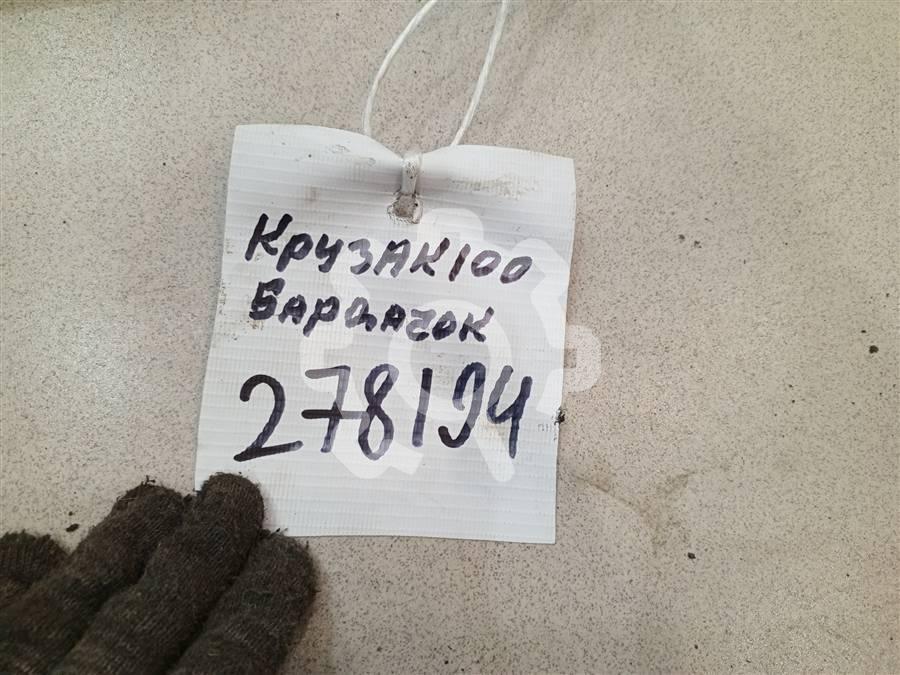 Крузак100
Бардачок
278194